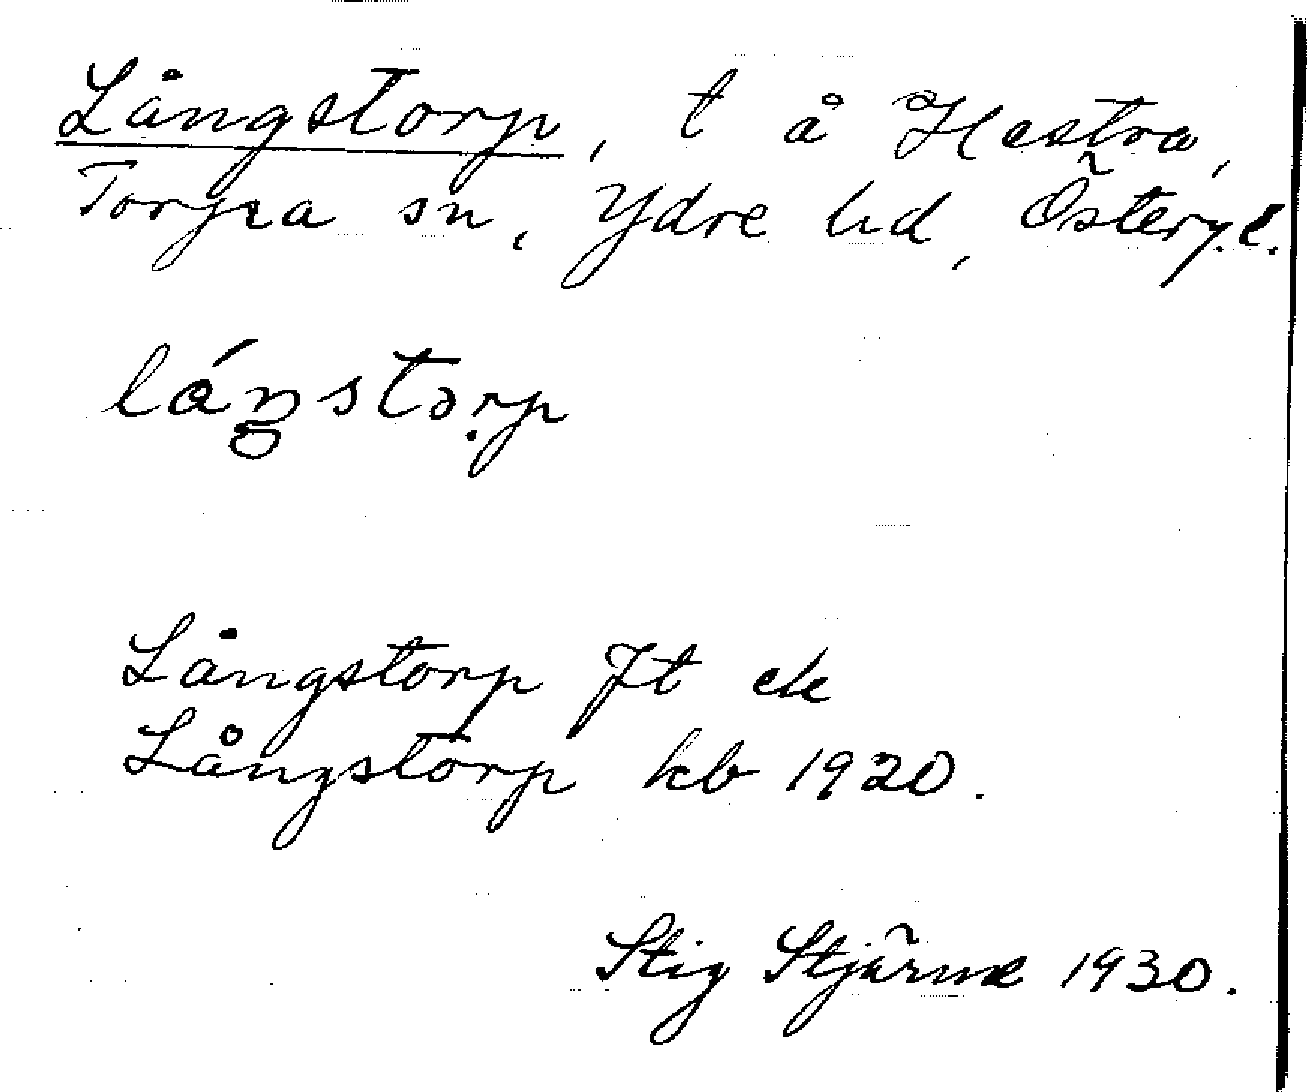 Långstorp, t å Hestra,
Torpa sn, Ydre hd, Österg.l.
lángstorp
Långstorp Jt ek
Långstorp kb 1920.
Stig Stjärne 1930.